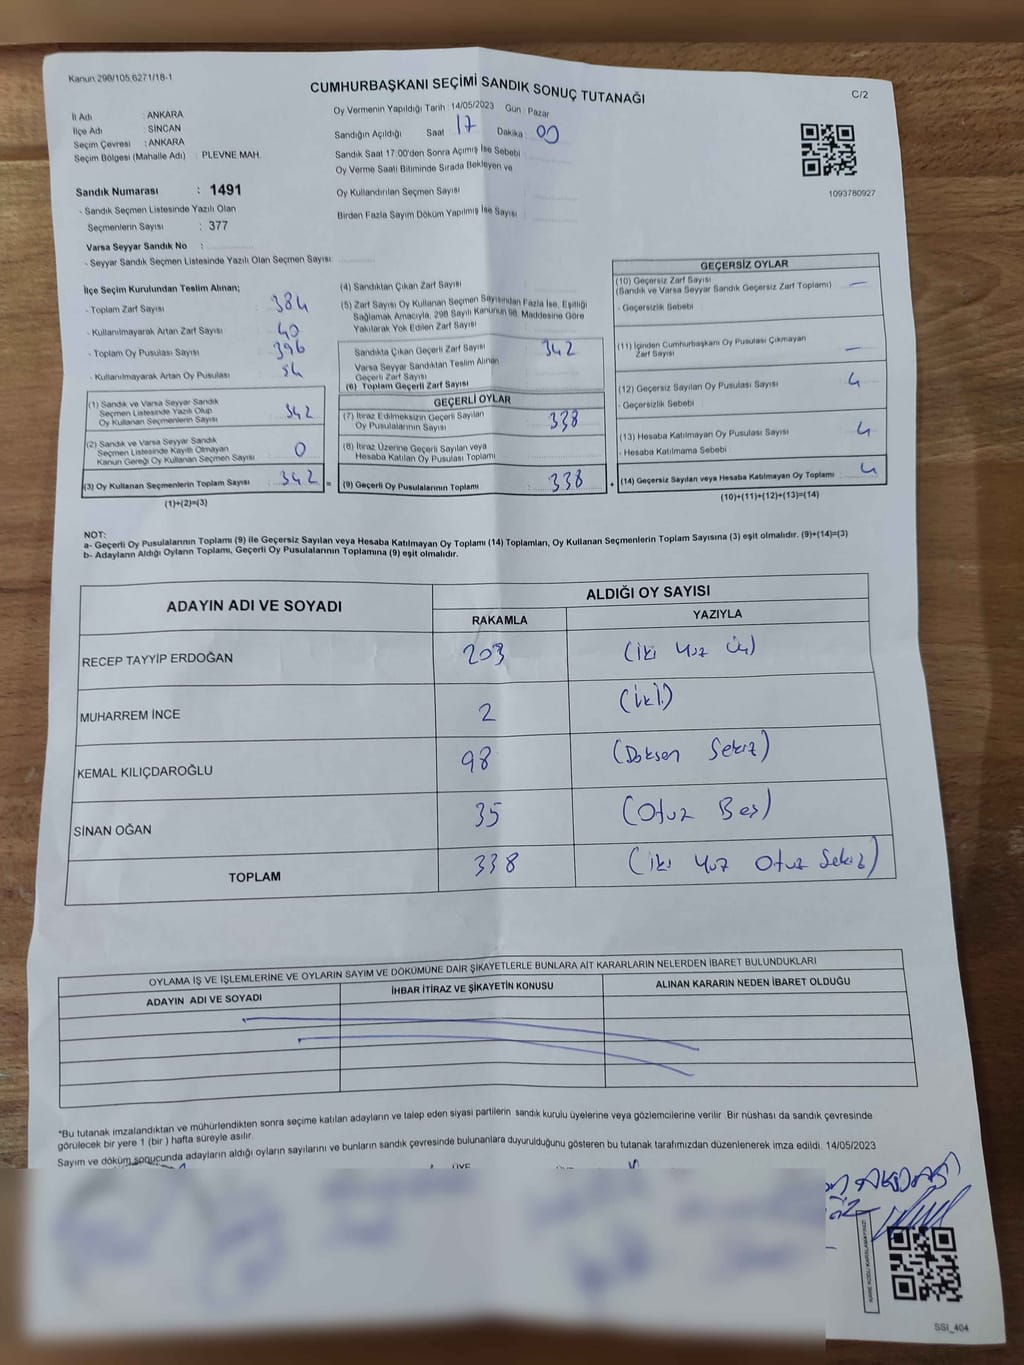 Kanun:298/105,6271/18-1
CUMHURBAŞKANI SEÇİMİ SANDIK SONUÇ TUTANAĞI
C/2
İl Adı : ANKARA
İlçe Adı : SİNCAN
Seçim Çevresi : ANKARA
Seçim Bölgesi (Mahalle Adı) : PLEVNE MAH.
Oy Vermenin Yapıldığı Tarih : 14/05/2023 Gün : Pazar
Sandığın Açıldığı Saat 17 Dakika 00
Sandık Saat 17:00'den Sonra Açılmış İse Sebebi
Oy Verme Saati Bitiminde Sırada Bekleyen ve
Oy Kullandırılan Seçmen Sayısı
Birden Fazla Sayım Döküm Yapılmış İse Sayısı
1093780927
Sandık Numarası : 1491
- Sandık Seçmen Listesinde Yazılı Olan
Seçmenlerin Sayısı : 377
Varsa Seyyar Sandık No :
- Seyyar Sandık Seçmen Listesinde Yazılı Olan Seçmen Sayısı:
İlçe Seçim Kurulundan Teslim Alınan;
- Toplam Zarf Sayısı : 384
- Kullanılmayarak Artan Zarf Sayısı : 40
- Toplam Oy Pusulası Sayısı : 396
- Kullanılmayarak Artan Oy Pusulası : 54
(1) Sandık ve Varsa Seyyar Sandık
Seçmen Listesinde Yazılı Olup
Oy Kullanan Seçmenlerin Sayısı : 342
(2) Sandık ve Varsa Seyyar Sandık
Seçmen Listesinde Kayıtlı Olmayan
Kanun Gereği Oy Kullanan Seçmen Sayısı : 0
(3) Oy Kullanan Seçmenlerin Toplam Sayısı : 342 =
(1)+(2)=(3)
(4) Sandıktan Çıkan Zarf Sayısı
(5) Zarf Sayısı Oy Kullanan Seçmen Sayısından Fazla İse, Eşitliği
Sağlamak Amacıyla, 298 Sayılı Kanunun 98. Maddesine Göre
Yakılarak Yok Edilen Zarf Sayısı
Sandıkta Çıkan Geçerli Zarf Sayısı : 342
Varsa Seyyar Sandıktan Teslim Alınan
Geçerli Zarf Sayısı
(6) Toplam Geçerli Zarf Sayısı
GEÇERLİ OYLAR
(7) İtiraz Edilmeksizin Geçerli Sayılan
Oy Pusulalarının Sayısı : 338
(8) İtiraz Üzerine Geçerli Sayılan veya
Hesaba Katılan Oy Pusulası Toplamı
(9) Geçerli Oy Pusulalarının Toplamı : 338 +
GEÇERSİZ OYLAR
(10) Geçersiz Zarf Sayısı
(Sandık ve Varsa Seyyar Sandık Geçersiz Zarf Toplamı) : —
- Geçersizlik Sebebi
(11) İçinden Cumhurbaşkanı Oy Pusulası Çıkmayan
Zarf Sayısı : —
(12) Geçersiz Sayılan Oy Pusulası Sayısı : 4
- Geçersizlik Sebebi
(13) Hesaba Katılmayan Oy Pusulası Sayısı : 4
- Hesaba Katılmama Sebebi
(14) Geçersiz Sayılan veya Hesaba Katılmayan Oy Toplamı : 4
(10)+(11)+(12)+(13)=(14)
NOT:
a- Geçerli Oy Pusulalarının Toplamı (9) ile Geçersiz Sayılan veya Hesaba Katılmayan Oy Toplamı (14) Toplamları, Oy Kullanan Seçmenlerin Toplam Sayısına (3) eşit olmalıdır. (9)+(14)=(3)
b- Adayların Aldığı Oyların Toplamı, Geçerli Oy Pusulalarının Toplamına (9) eşit olmalıdır.
ADAYIN ADI VE SOYADI ALDIĞI OY SAYISI
RAKAMLA YAZIYLA
RECEP TAYYİP ERDOĞAN 203 (İki Yüz Üç)
MUHARREM İNCE 2 (İki)
KEMAL KILIÇDAROĞLU 98 (Doksan Sekiz)
SİNAN OĞAN 35 (Otuz Beş)
TOPLAM 338 (İki Yüz Otuz Sekiz)
OYLAMA İŞ VE İŞLEMLERİNE VE OYLARIN SAYIM VE DÖKÜMÜNE DAİR ŞİKAYETLERLE BUNLARA AİT KARARLARIN NELERDEN İBARET BULUNDUKLARI
ADAYIN ADI VE SOYADI İHBAR İTİRAZ VE ŞİKAYETİN KONUSU ALINAN KARARIN NEDEN İBARET OLDUĞU
*Bu tutanak imzalandıktan ve mühürlendikten sonra seçime katılan adayların ve talep eden siyasi partilerin sandık kurulu üyelerine veya gözlemcilerine verilir. Bir nüshası da sandık çevresinde
görülecek bir yere 1 (bir) hafta süreyle asılır.
Sayım ve döküm sonucunda adayların aldığı oyların sayılarını ve bunların sandık çevresinde bulunanlara duyurulduğunu gösteren bu tutanak tarafımızdan düzenlenerek imza edildi. 14/05/2023
ÜYE
KARE KODU KARALAMAYINIZ!
SSI_404